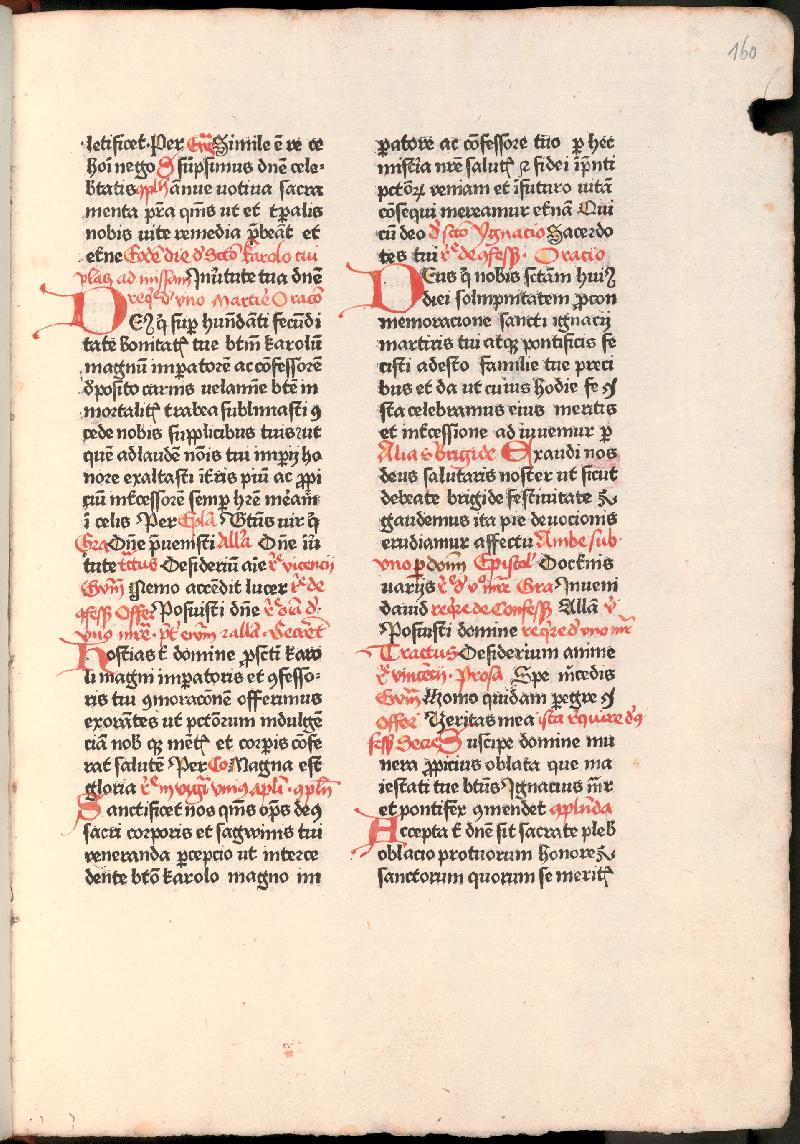 160
letificet. Per Evḡ Simile ē re ce
hoī nego S sūpsimus dn̄e cele-
britatis ꝯpl̄ annue votiua sacra
menta pr̄a qm̄s ut et tꝑalis
nobis uite remedia p̄beāt et
et̄ne Eodē die d̄ scto karolo cui
placȝ ad missam In ūtute tua dn̄e
req̄e d̄ vno martire Oracō
DEꝰ q̄ suꝑ hundāti fecūdi
tate bonitatꝭ tue btm̄ karolū
magnū imꝑatorē ac cōfessorē
d̄posito carnis uelamīe btē in
mortalitꝭ trabea sublimasti ꝯ
cede nobis supplicibus tuis ut
quē ad laudē nōis tui imꝑij ho
nore exaltasti ī tr̄is piū ac ꝓpi
ciū int̄cessorē semꝑ hr̄e meāmr̄
ī celis Per Epl̄a Btūs uir q̄
Gra Dn̄e p̄uenisti Alla Dn̄e in ū
tute tctus Desideriū aīe rͤ vicencij
Evm̄ Nemo accēdit lucer rͤ de
ꝯfess Offer Posuisti dn̄e rͤ oīa d̄
vnoͥ mr̄e · pt̄ evm̄ ꞇ alla · Secret
Hostias t̄ domine ꝓ scti karo
li magni imꝑatoris et ꝯfesso-
ris tui ꝯmoracōnē offerimus
exorātes ut pctōrum indulgē
ciā nob qꝫ mētꝭ et corꝑis cōfe
rat salutē Per Co: Magna est
gloria rͤ in vigͥ vniꝰ apl̄i · ꝯpl̄n
Sanctificet nos qm̄s ōps deꝰ
sacri corporis et sāgwinis tui
veneranda ꝑcepcio ut interce
dente btō karolo magno im
ꝑatore ac cōfessore tuo ꝑ hec
mist̄ia nr̄e salutꝭ ꞇ fidei īpn̄ti
pctōꝝ veniam et ī futuro uitā
cōsequi mereamur et̄nā Qui
cū deo d̄ scto Ygnacio Sacerdo
tes tui rͤ de ꝯfess · Oracio
DEus q̄ nobis sctām huiꝰ
diei solmpnitatem ꝓ con
memoracione sancti ignacij
martiris tui atqꝫ pontificis fe
cisti adesto familie tue preci
bus et da ut cuius hodie fe
sta celebramus eius meritis
et int̄cessione ad iuuemur ꝑ
Alia s Brigide Exaudi nos
deus salutaris noster ut sicut
de beate brigide festiuitate
gaudemus ita pie deuocionis
erudiamur affectu Ambe sub
vno ꝑ dom̄ Epistol Doctrīis
uarijs rͤ d̄ vͦ mr̄e Gra Inueni
dauid req̄re de Confess Allā v̄
Posuisti domine req̄re d̄ vno mr̄
Tractus Desiderium anime
rͤ vincēcij · Prosa Spe m̄cedis
Evm̄ Homo quidam ꝑegre
Offer Veritas mea ista req̄uire d̄ ꝯ
fess Secre Suscipe domine mu
nera ꝓpicius oblata que ma
iestati tue btūs Ignacius m̄r
et pontifex ꝯmendet ꝯplēnda
Accepta t̄ dn̄e sit sacrate pleb
oblacio pro tuorum honore
sanctorum quorum se meritꝭ